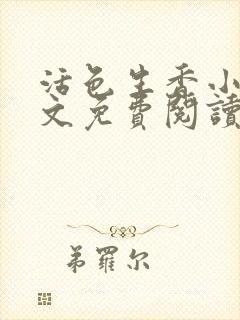 活色生香小
文免費閱讀
弟羅尔